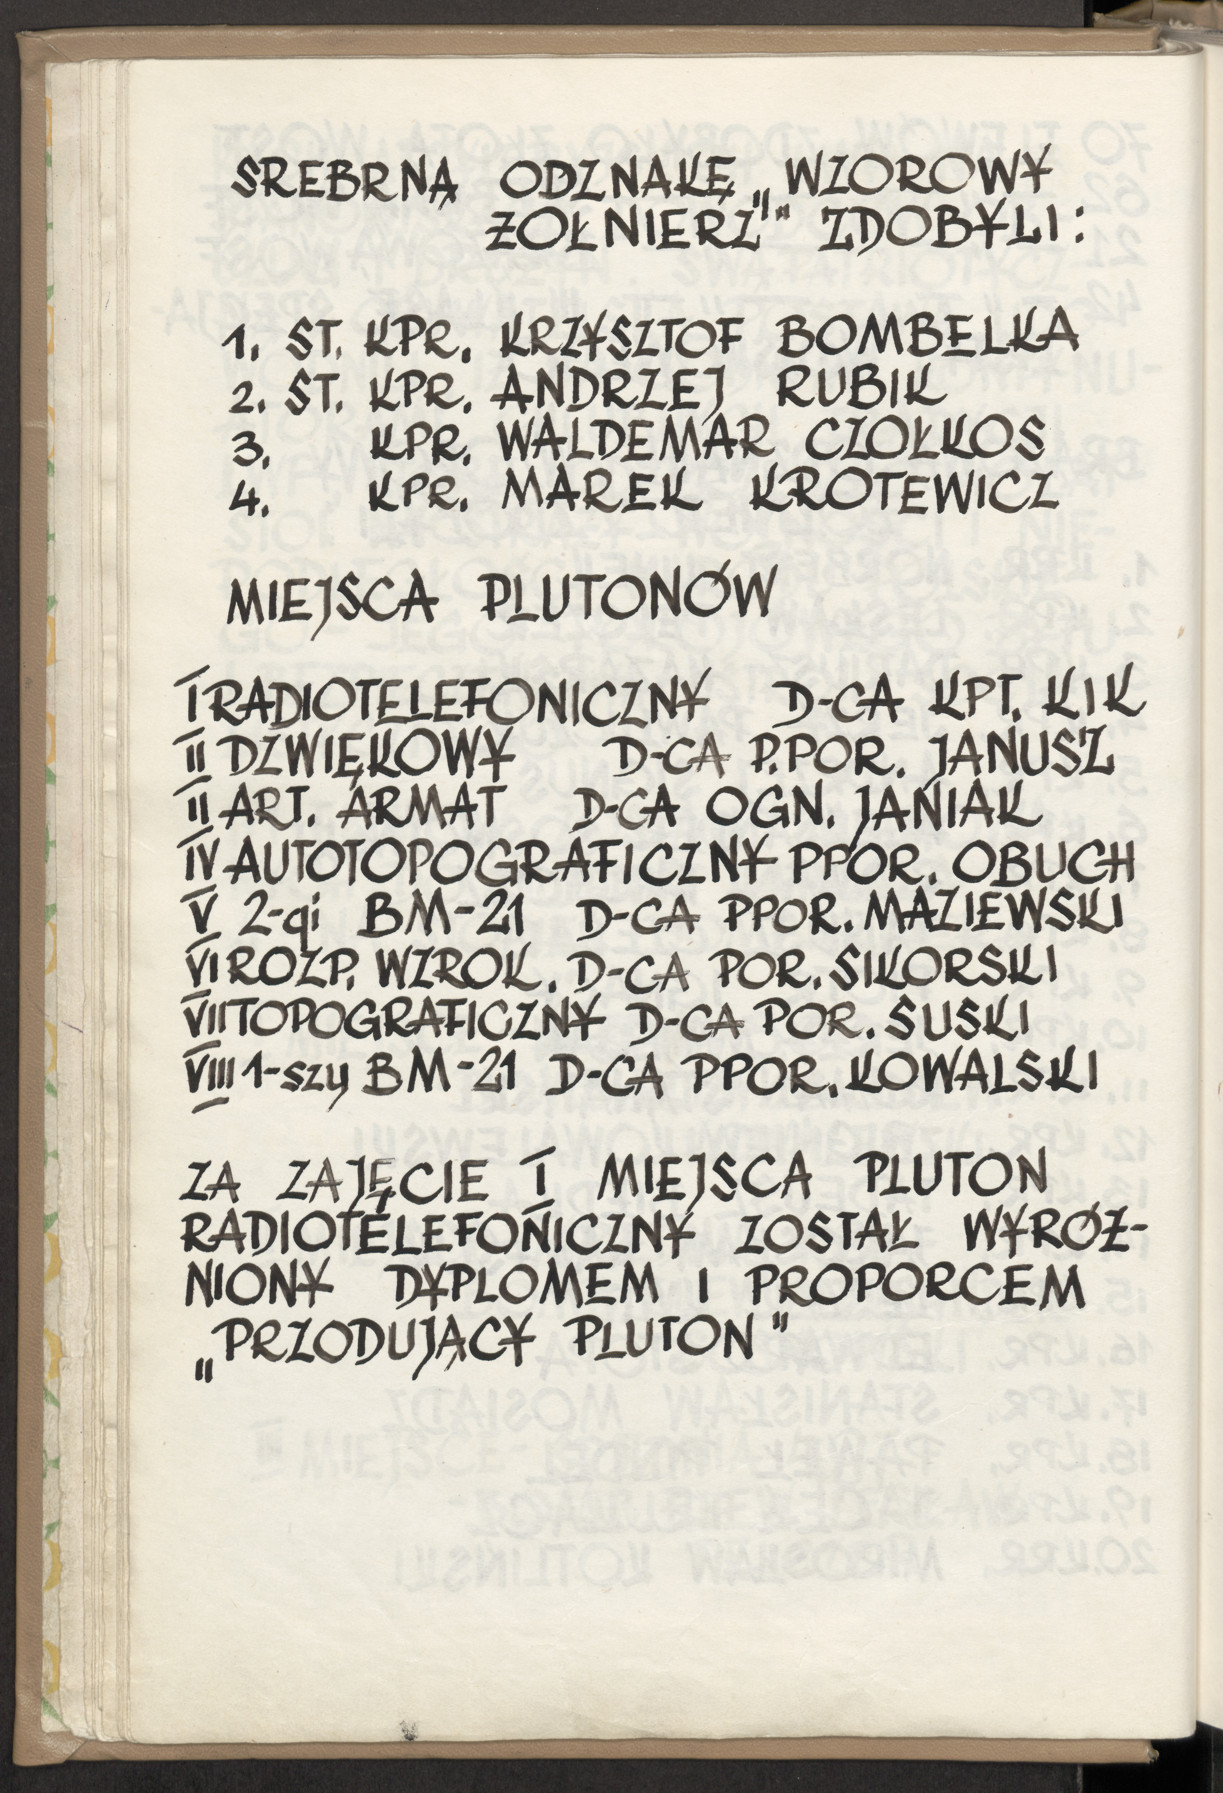 SREBRNĄ ODZNAKĘ „WZOROWY
ŻOŁNIERZ" ZDOBYLI:
1. ST. KPR. KRZYSZTOF BOMBELKA
2. ST. KPR. ANDRZEJ RUBIK
3. KPR. WALDEMAR CZOŁKOS
4. KPR. MAREK KROTEWICZ
MIEJSCA PLUTONÓW
I RADIOTELEFONICZNY D-CA KPT. KIK
II DŹWIĘKOWY D-CA P.POR. JANUSZ
II ART. ARMAT D-CA OGN. JANIAK
IV AUTOTOPOGRAFICZNY PPOR. OBUCH
V 2-gi BM-21 D-CA PPOR. MAZIEWSKI
VI ROZP. WZROK. D-CA POR. SIKORSKI
VII TOPOGRAFICZNY D-CA POR. SUSKI
VIII 1-szy BM-21 D-CA PPOR. KOWALSKI
ZA ZAJĘCIE I MIEJSCA PLUTON
RADIOTELEFONICZNY ZOSTAŁ WYRÓŻ-
NIONY DYPLOMEM I PROPORCEM
„PRZODUJĄCY PLUTON"